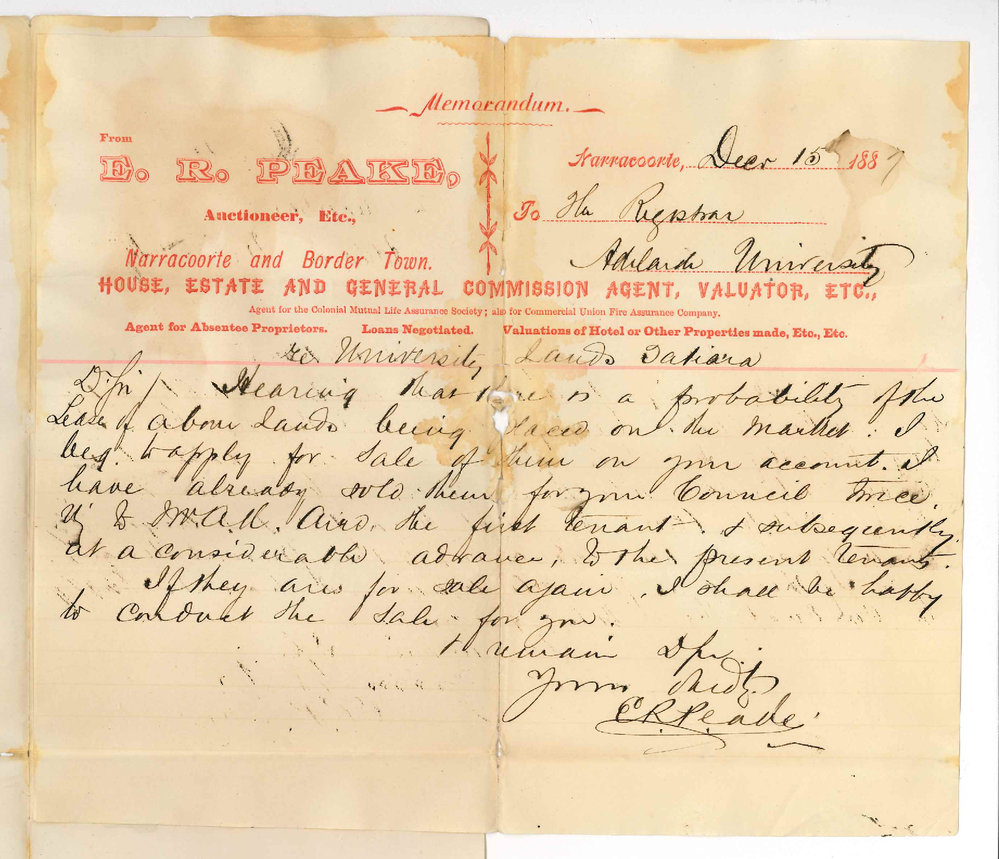 Memorandum.
From
E. R. PEAKE,
Auctioneer, Etc.,
Narracoorte and Border Town.
Narracoorte, Decr 15 1887
To The Registrar
Adelaide University
HOUSE, ESTATE AND GENERAL COMMISSION AGENT, VALUATOR, ETC.,
Agent for the Colonial Mutual Life Assurance Society; also for Commercial Union Fire Assurance Company.
Agent for Absentee Proprietors. Loans Negotiated. Valuations of Hotel or Other Properties made, Etc., Etc.
re University Lands Tatiara
D Sir/ Hearing that there is a probability of the
Lease of above Lands being placed on the market. I
beg to apply for sale of them on your account. I
have already sold them for your Council twice
Viz to Aird, the first tenant & subsequently,
at a considerable advance, to the present tenant.
If they are for sale again, I shall be happy
to conduct the sale for you.
I remain D Sir
Yours
E R Peake